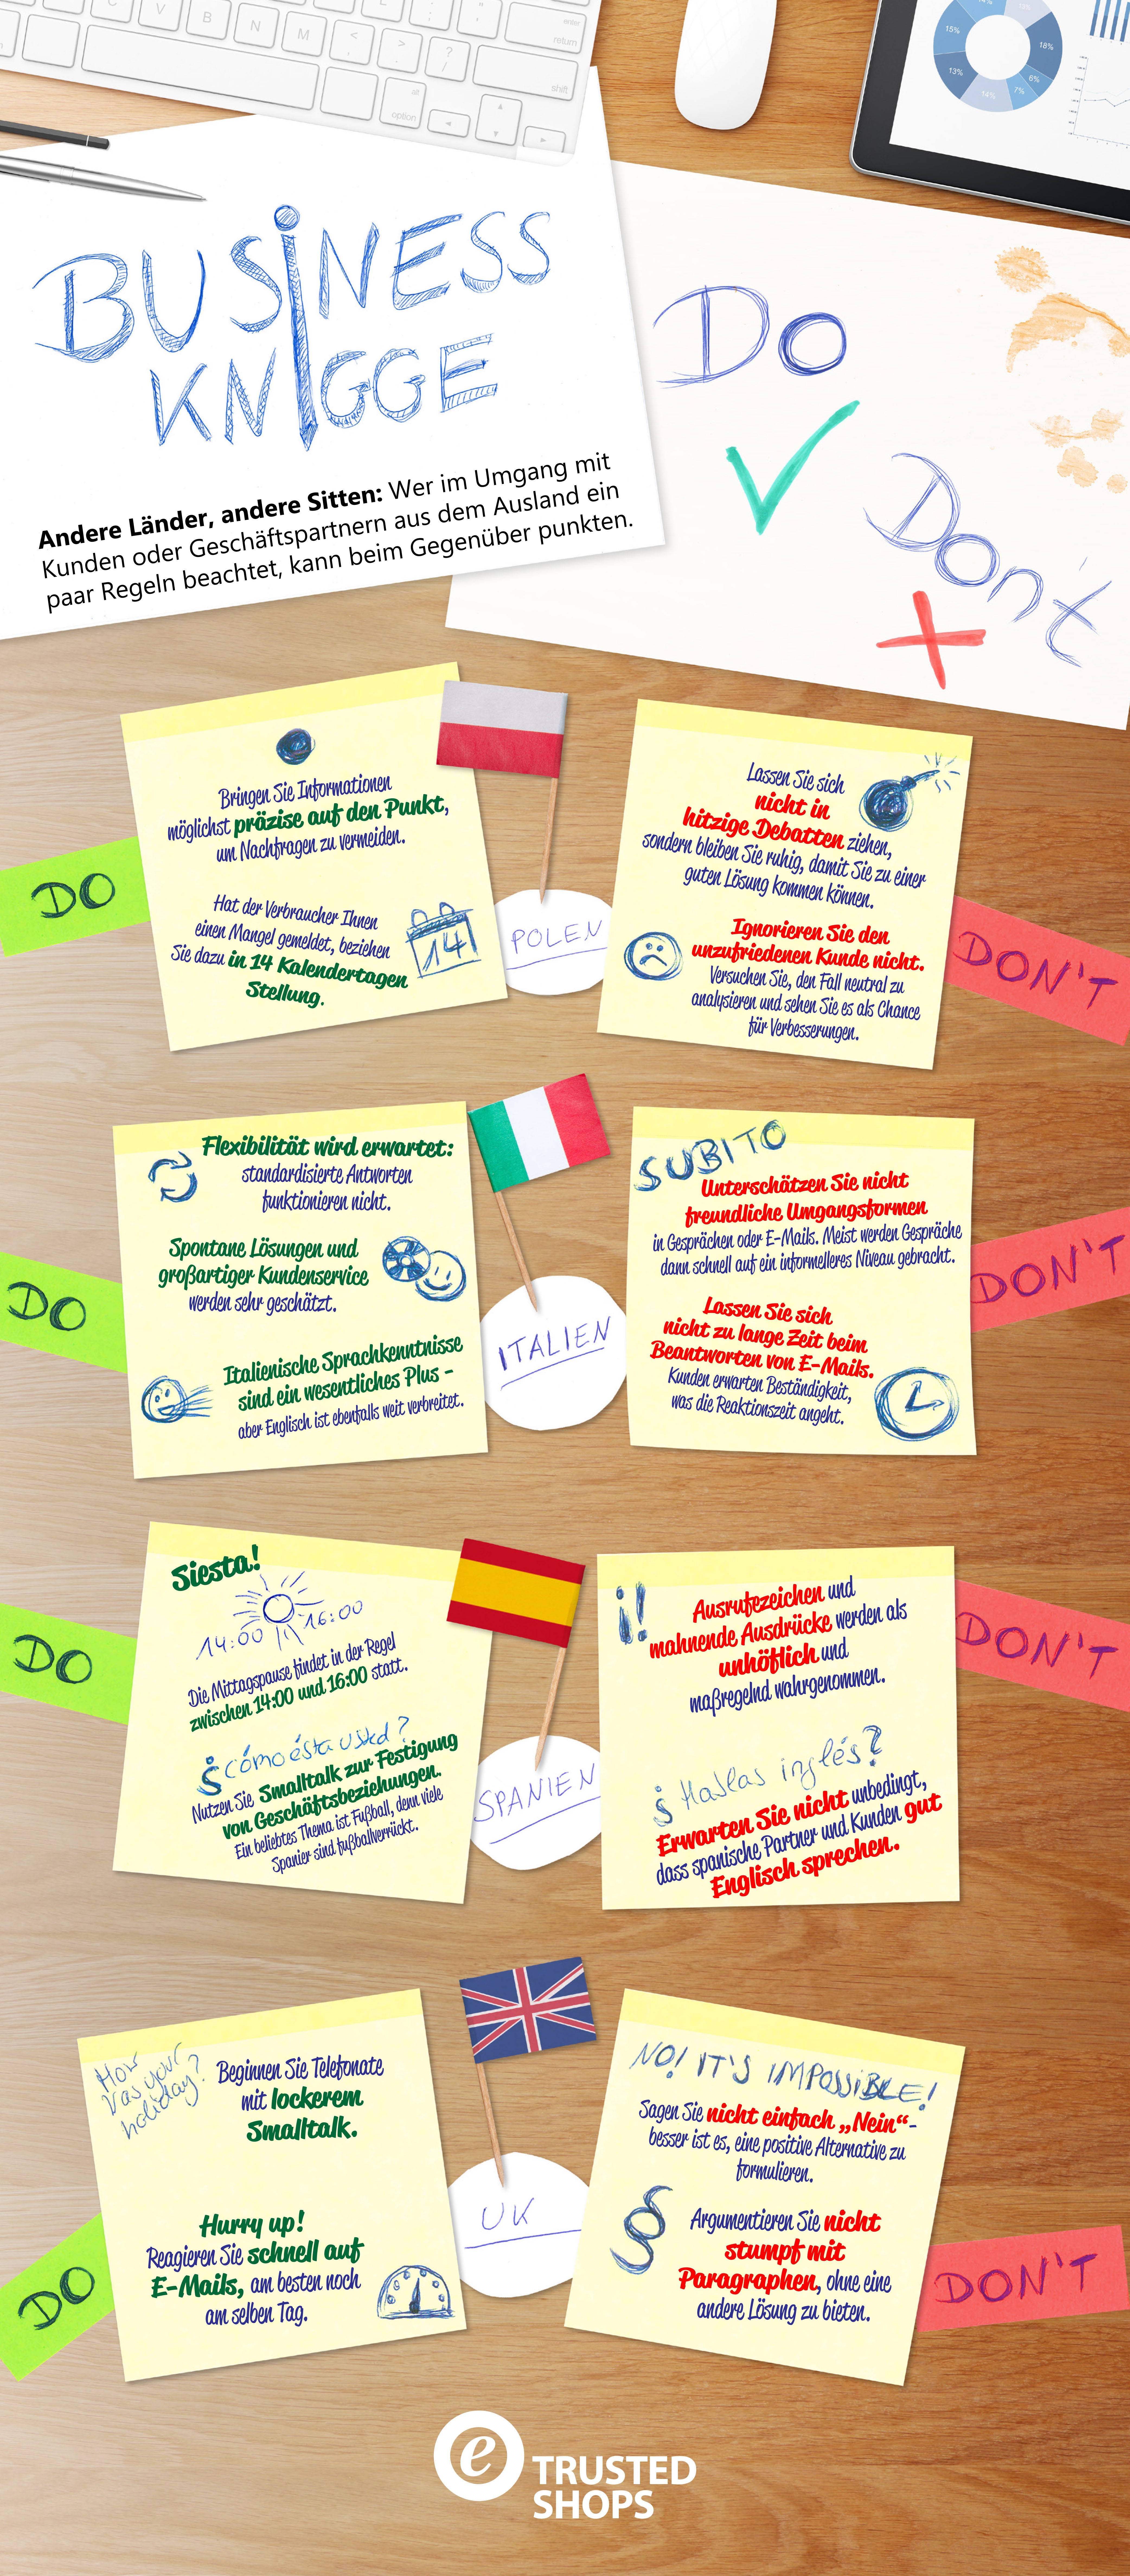 C
V
B
N
M
<
,
>
.
?
/
L
:
;
"
'
enter
return
shift
alt
option
15%
14%
15%
18%
13%
6%
14%
7%
BUSINESS
KNIGGE
Andere Länder, andere Sitten: Wer im Umgang mit
Kunden oder Geschäftspartnern aus dem Ausland ein
paar Regeln beachtet, kann beim Gegenüber punkten.
Do
Don't
DO
Bringen Sie Informationen
möglichst präzise auf den Punkt,
um Nachfragen zu vermeiden.
Hat der Verbraucher Ihnen
einen Mangel gemeldet, beziehen
Sie dazu in 14 Kalendertagen
Stellung.
14
POLEN
Lassen Sie sich
nicht in
hitzige Debatten ziehen,
sondern bleiben Sie ruhig, damit Sie zu einer
guten Lösung kommen können.
Ignorieren Sie den
unzufriedenen Kunde nicht.
Versuchen Sie, den Fall neutral zu
analysieren und sehen Sie es als Chance
für Verbesserungen.
DON'T
DO
Flexibilität wird erwartet:
standardisierte Antworten
funktionieren nicht.
Spontane Lösungen und
großartiger Kundenservice
werden sehr geschätzt.
Italienische Sprachkenntnisse
sind ein wesentliches Plus -
aber Englisch ist ebenfalls weit verbreitet.
ITALIEN
SUBITO
Unterschätzen Sie nicht
freundliche Umgangsformen
in Gesprächen oder E-Mails. Meist werden Gespräche
dann schnell auf ein informelleres Niveau gebracht.
Lassen Sie sich
nicht zu lange Zeit beim
Beantworten von E-Mails.
Kunden erwarten Beständigkeit,
was die Reaktionszeit angeht.
DON'T
DO
Siesta!
14:00 16:00
Die Mittagspause findet in der Regel
zwischen 14:00 und 16:00 statt.
¿cómo ésta usted?
Nutzen Sie Smalltalk zur Festigung
von Geschäftsbeziehungen.
Ein beliebtes Thema ist Fußball, denn viele
Spanier sind fußballverrückt.
SPANIEN
¡!
Ausrufezeichen und
mahnende Ausdrücke werden als
unhöflich und
maßregelnd wahrgenommen.
¿Hablas inglés?
Erwarten Sie nicht unbedingt,
dass spanische Partner und Kunden gut
Englisch sprechen.
DON'T
DO
How
was your
holiday?
Beginnen Sie Telefonate
mit lockerem
Smalltalk.
Hurry up!
Reagieren Sie schnell auf
E-Mails, am besten noch
am selben Tag.
UK
NO! IT'S IMPOSSIBLE!
Sagen Sie nicht einfach „Nein“-
besser ist es, eine positive Alternative zu
formulieren.
§
Argumentieren Sie nicht
stumpf mit
Paragraphen, ohne eine
andere Lösung zu bieten.
DON'T
e TRUSTED
SHOPS